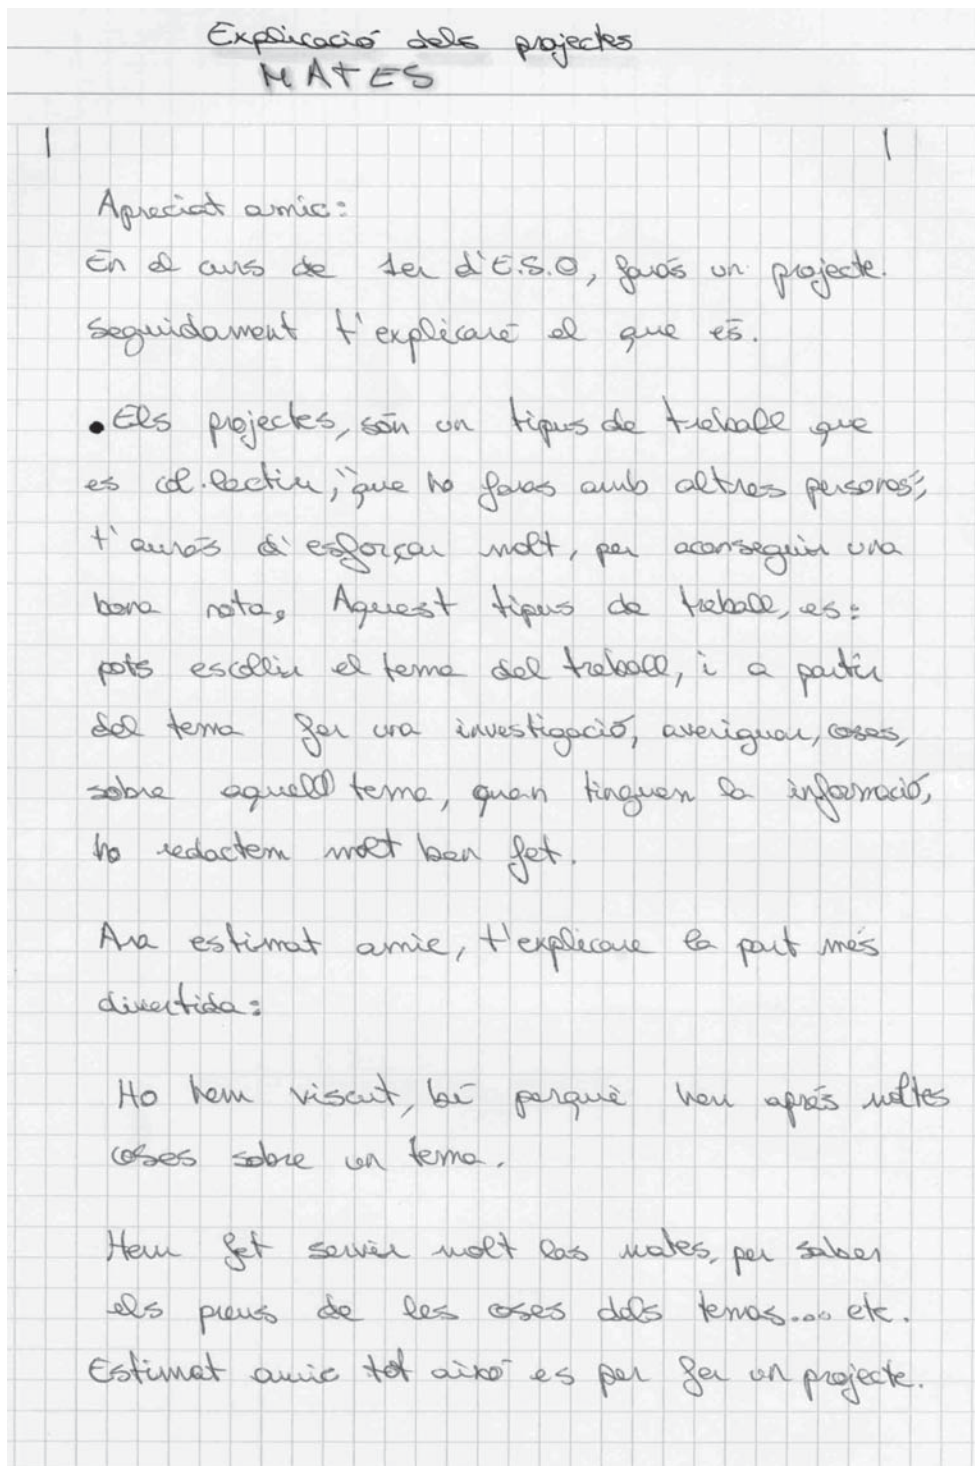 Explicació dels projectes
MATES
Apreciat amic:
En el curs de 1er d'E.S.O, faràs un projecte.
Seguidament t'explicaré el que és.
• Els projectes, són un tipus de treball que
es col·lectiu, "que ho faras amb altres persones",
t'auràs d'esforçar molt, per aconseguir una
bona nota, Aquest tipus de treball, es:
pots escollir el tema del treball, i a partir
del tema fer una investigació, averiguar, coses,
sobre aquell tema, quan tinguem la informació,
ho redactem molt ben fet.
Ara estimat amic, t'explicare la part més
divertida:
Ho hem viscut, bé perquè hem aprés moltes
coses sobre un tema.
Hem fet servir molt las mates, per saber
els preus de les coses dels temas... etc.
Estimat amic tot aixó es per fer un projecte.